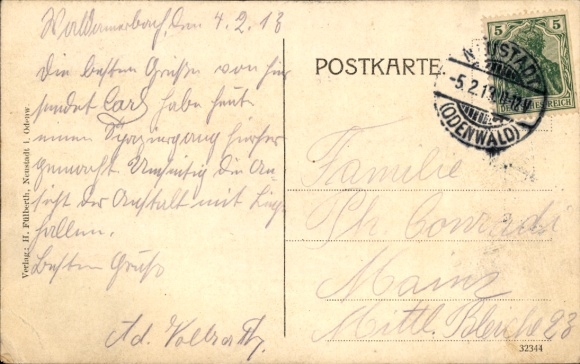 Waldamorbach, den 4.2.13
Die besten Grüße von hier
sendet Carl habe heute
einen Spaziergang hierher
gemacht. Umseitig die An-
sicht der Anstalt mit
fallen.
Besten Gruß
Ad.
Verlag: H. Füllberth, Neustadt i. Odenw.
POSTKARTE.
5 5
DEUTSCHES REICH
NEUSTADT
-5.2.13.
(ODENWALD)
Familie
Ph. Conradi
Mainz
Mittl. Bleiche 23
32344